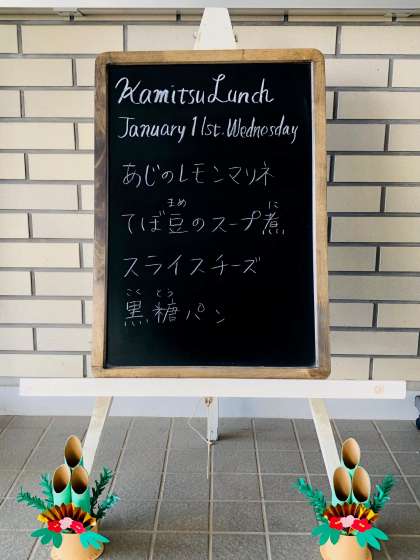 Kamitsu Lunch
January 11st. Wednesday
あじのレモンマリネ
まめ に
てぼ豆のスープ煮
スライスチーズ
こく とう
黒糖パン